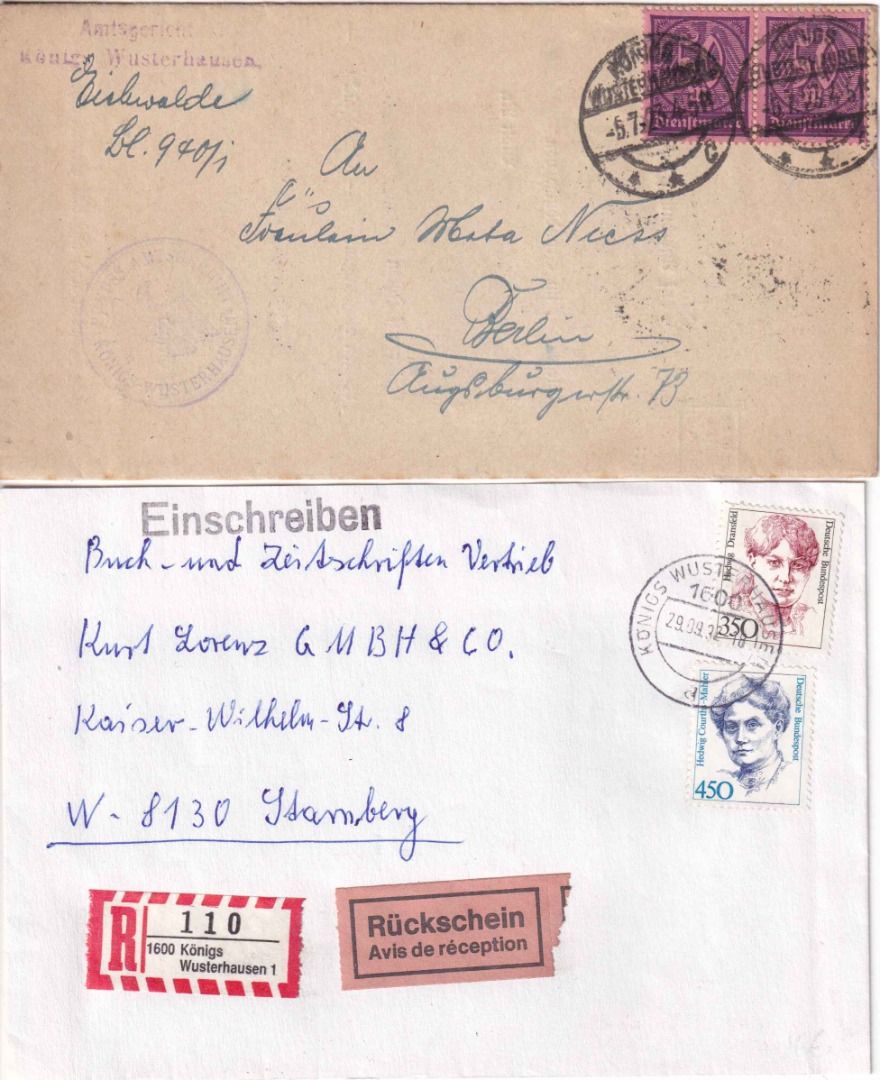 Amtsgericht
Königs Wusterhausen.
Eichwalde
Bl. 940/i
An
Fräulein Meta Niess
Berlin
Augsburgerstr. 73
50
50
Dienstmarke
Dienstmarke
KÖNIGS
WUSTERHAUSEN
-6.7.
4-5N
c
KÖNIGS
WUSTERHAUSEN
KÖNIGS-WUSTERHAUSEN
Einschreiben
Buch- und Zeitschriften Vertrieb
Kurt Lorenz GMBH & CO.
Kaiser-Wilhelm-St. 8
W-8130 Starnberg
Hedwig Dransfeld
Deutsche Bundespost
350
KÖNIGS WUSTERHAUSEN 1
1600
29.09.
d
Hedwig Courths-Mahler
Deutsche Bundespost
450
R
110
1600 Königs
Wusterhausen 1
Rückschein
Avis de réception